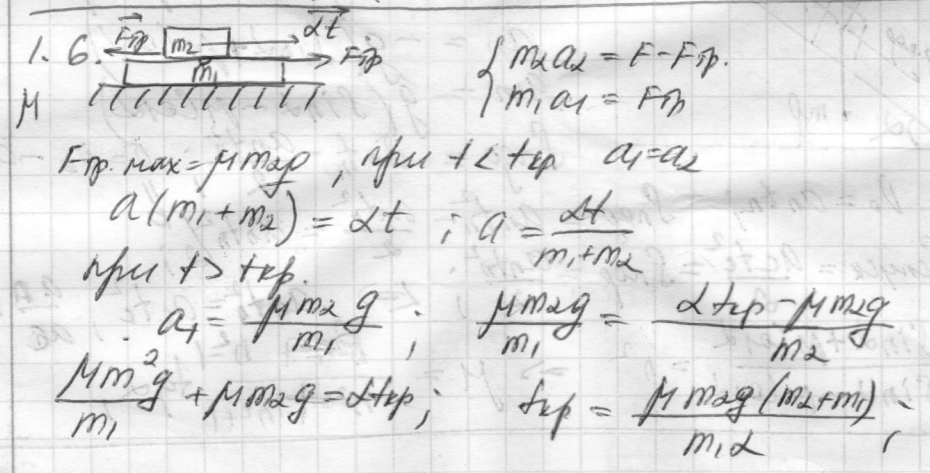 1.6. F⃗тр m₂ αt⃗ Fтр m₁ μ
{ m₂a₂ = F - Fтр.
{ m₁a₁ = Fтр
Fтр. max = μm₂g, при t < tкр a₁ = a₂
a(m₁ + m₂) = αt ; a = αt / (m₁ + m₂)
при t > tкр.
a₁ = μm₂g / m₁ ; μm₂g / m₁ = (αtкр - μm₂g) / m₂
μm²g / m₁ + μm₂g = αtкр ; tкр = μm₂g(m₂ + m₁) / m₁α ;